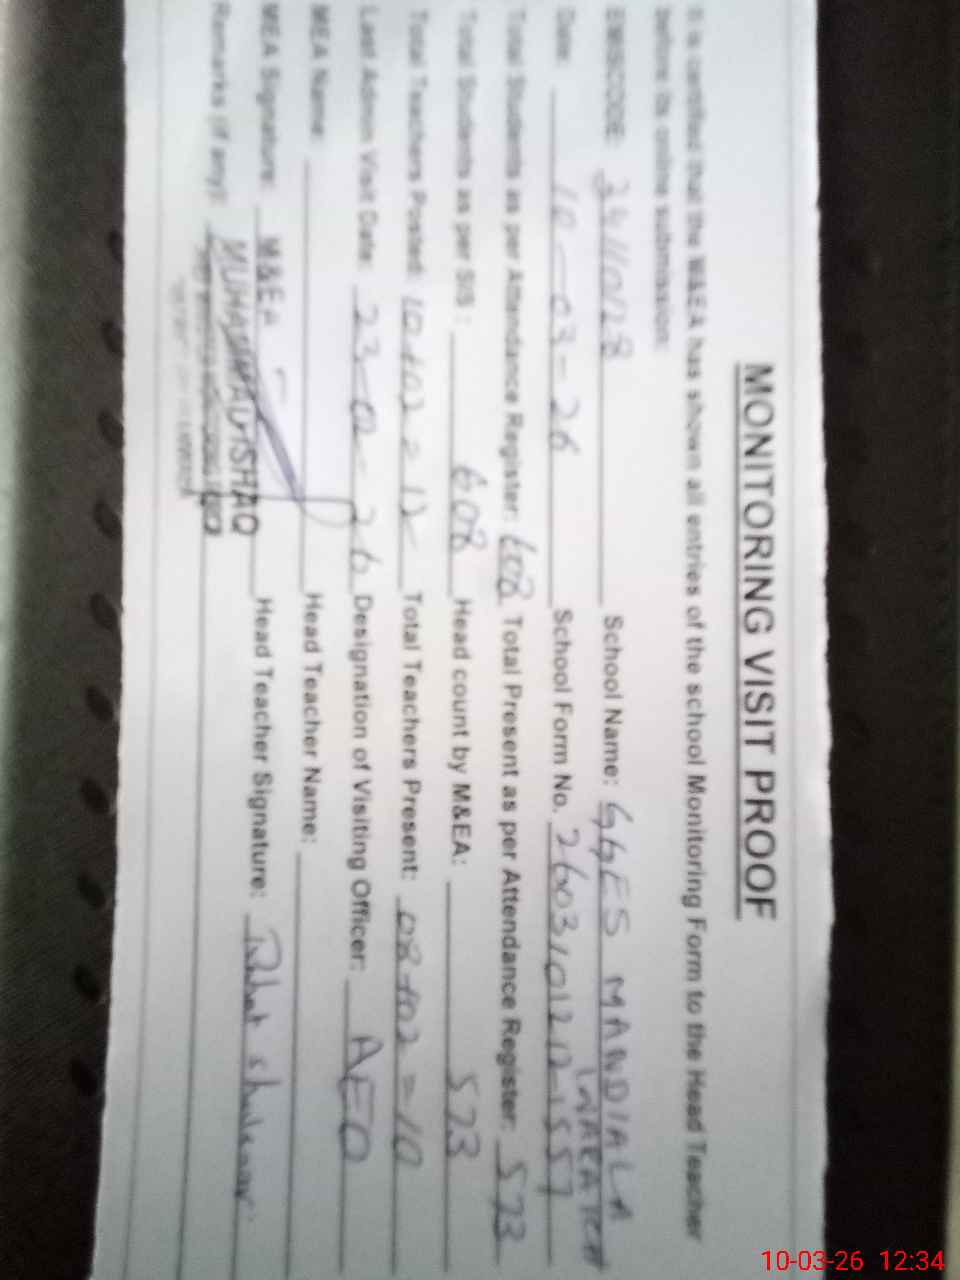 MONITORING VISIT PROOF
It is certified that the M&EA has shown all entries of the school Monitoring Form to the Head Teacher
before its online submission:
EMISCODE: 34110128 School Name: GGES MANDIALA WARAICH
Date: 10-03-26 School Form No. 2603101212-1557
Total Students as per Attendance Register: 608 Total Present as per Attendance Register: 573
Total Students as per SIS: 608 Head count by M&EA: 573
Total Teachers Posted: 10+02=12 Total Teachers Present: 08+02=10
Last Admin Visit Date: 23-02-26 Designation of Visiting Officer: AEO
MEA Name: Head Teacher Name:
MEA Signature: M&EA Head Teacher Signature:
MUHAMMAD ISHAQ
Remarks (if any):
10-03-26 12:34